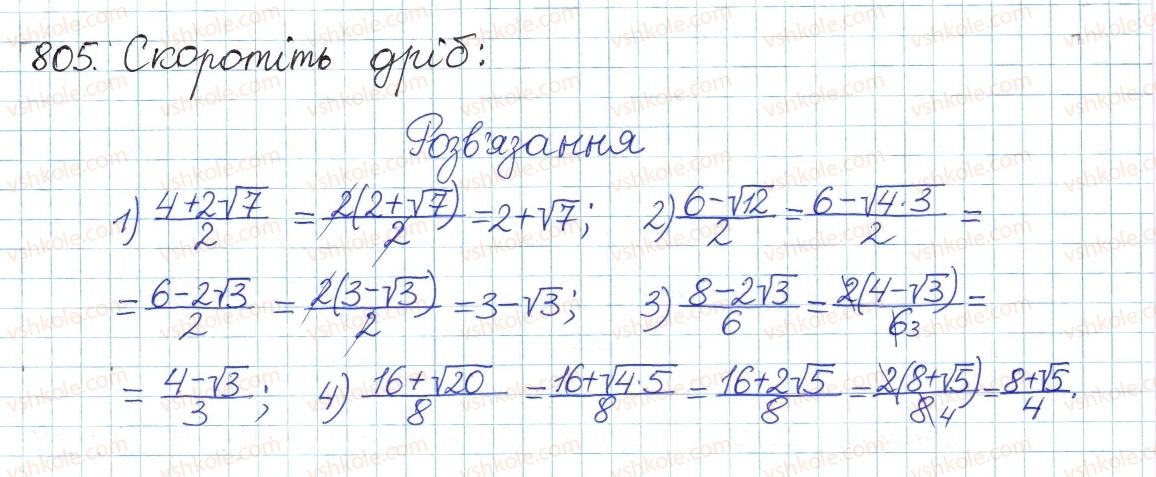 805. Скоротіть дріб:
Розв'язання
1) (4+2√7)/2 = 2(2+√7)/2 = 2+√7; 2) (6-√12)/2 = (6-√(4·3))/2 =
= (6-2√3)/2 = 2(3-√3)/2 = 3-√3; 3) (8-2√3)/6 = 2(4-√3)/6 3 =
= (4-√3)/3; 4) (16+√20)/8 = (16+√(4·5))/8 = (16+2√5)/8 = 2(8+√5)/8 4 = (8+√5)/4.